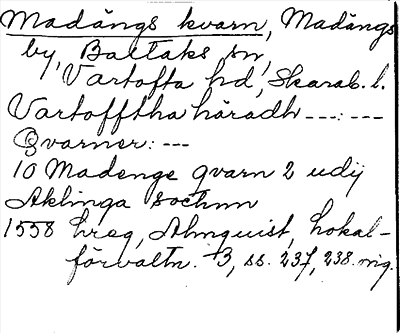 Madängs kvarn, Madängs
by, Baltaks sn,
Vartofta hd, Skarab. l.
Vartofftha häradh ---:---
Qvarner: ---
10 Madenge qvarn 2 udij
Aklinga sochnn
1558 hreg, Almquist, Lokal-
förvaltn. 3, ss. 237, 238. mg.